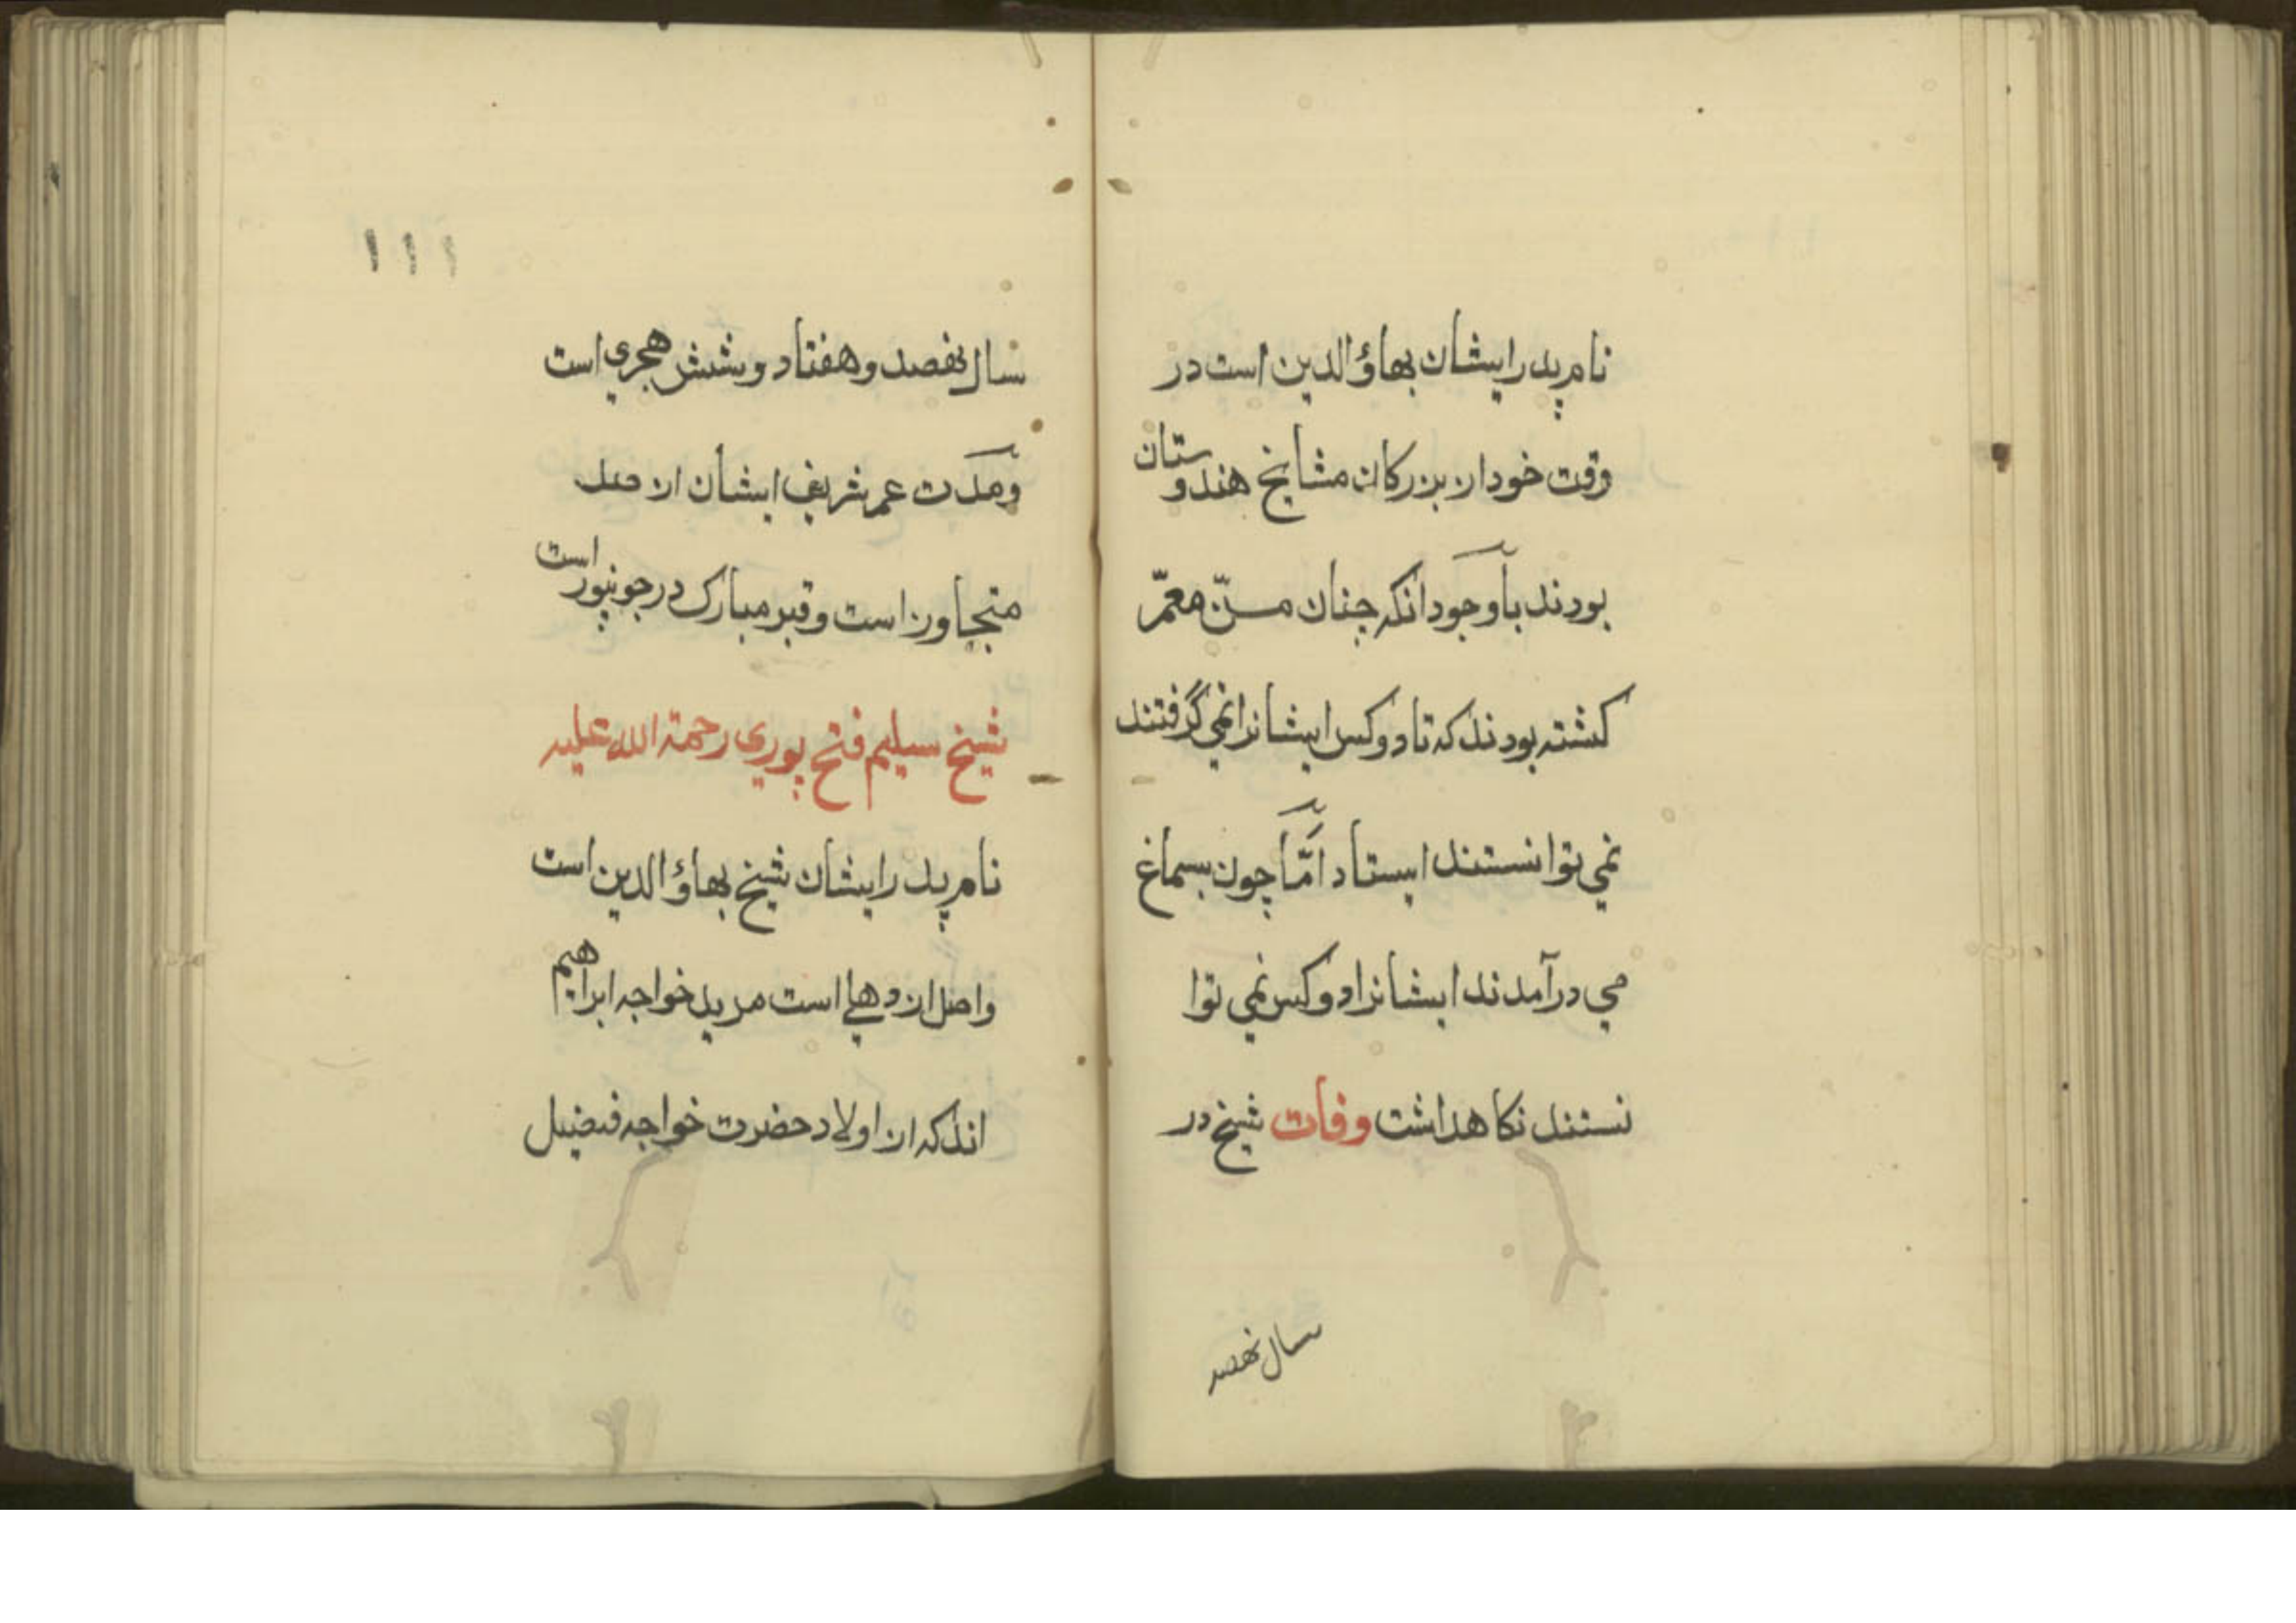 نام پدر ایشان بهاؤ الدین است در
وقت خود از بزرکان مشایخ هندوستان
بودند بآوجود انکه چنان مسنّ معمّر
کشته بودند که تا دو کس ایشانرا نمی گرفتند
نمی توانستند ایستاد امّا چون بسماع
می درآمدند ایشانرا دو کس نمی توا
نستند نکاهداشت وفات شیخ در
سال نهصد
۱۱۱
سال نهصد و هفتاد و شش هجری است
ومدت عمر شریف ایشان از صد
متجاوز است و قبر مبارک در جونپور است
شیخ سلیم فتح پوری رحمة الله علیه
نام پدر ایشان شیخ بهاؤ الدین است
واصل از دهلی است مرید خواجه ابراهیم
اند که از اولاد حضرت خواجه فضیل